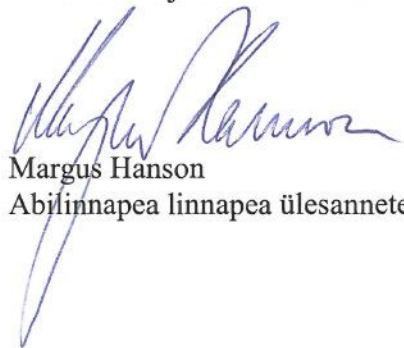 Margus Hanson
Abilinnapea linnapea ülesannetes